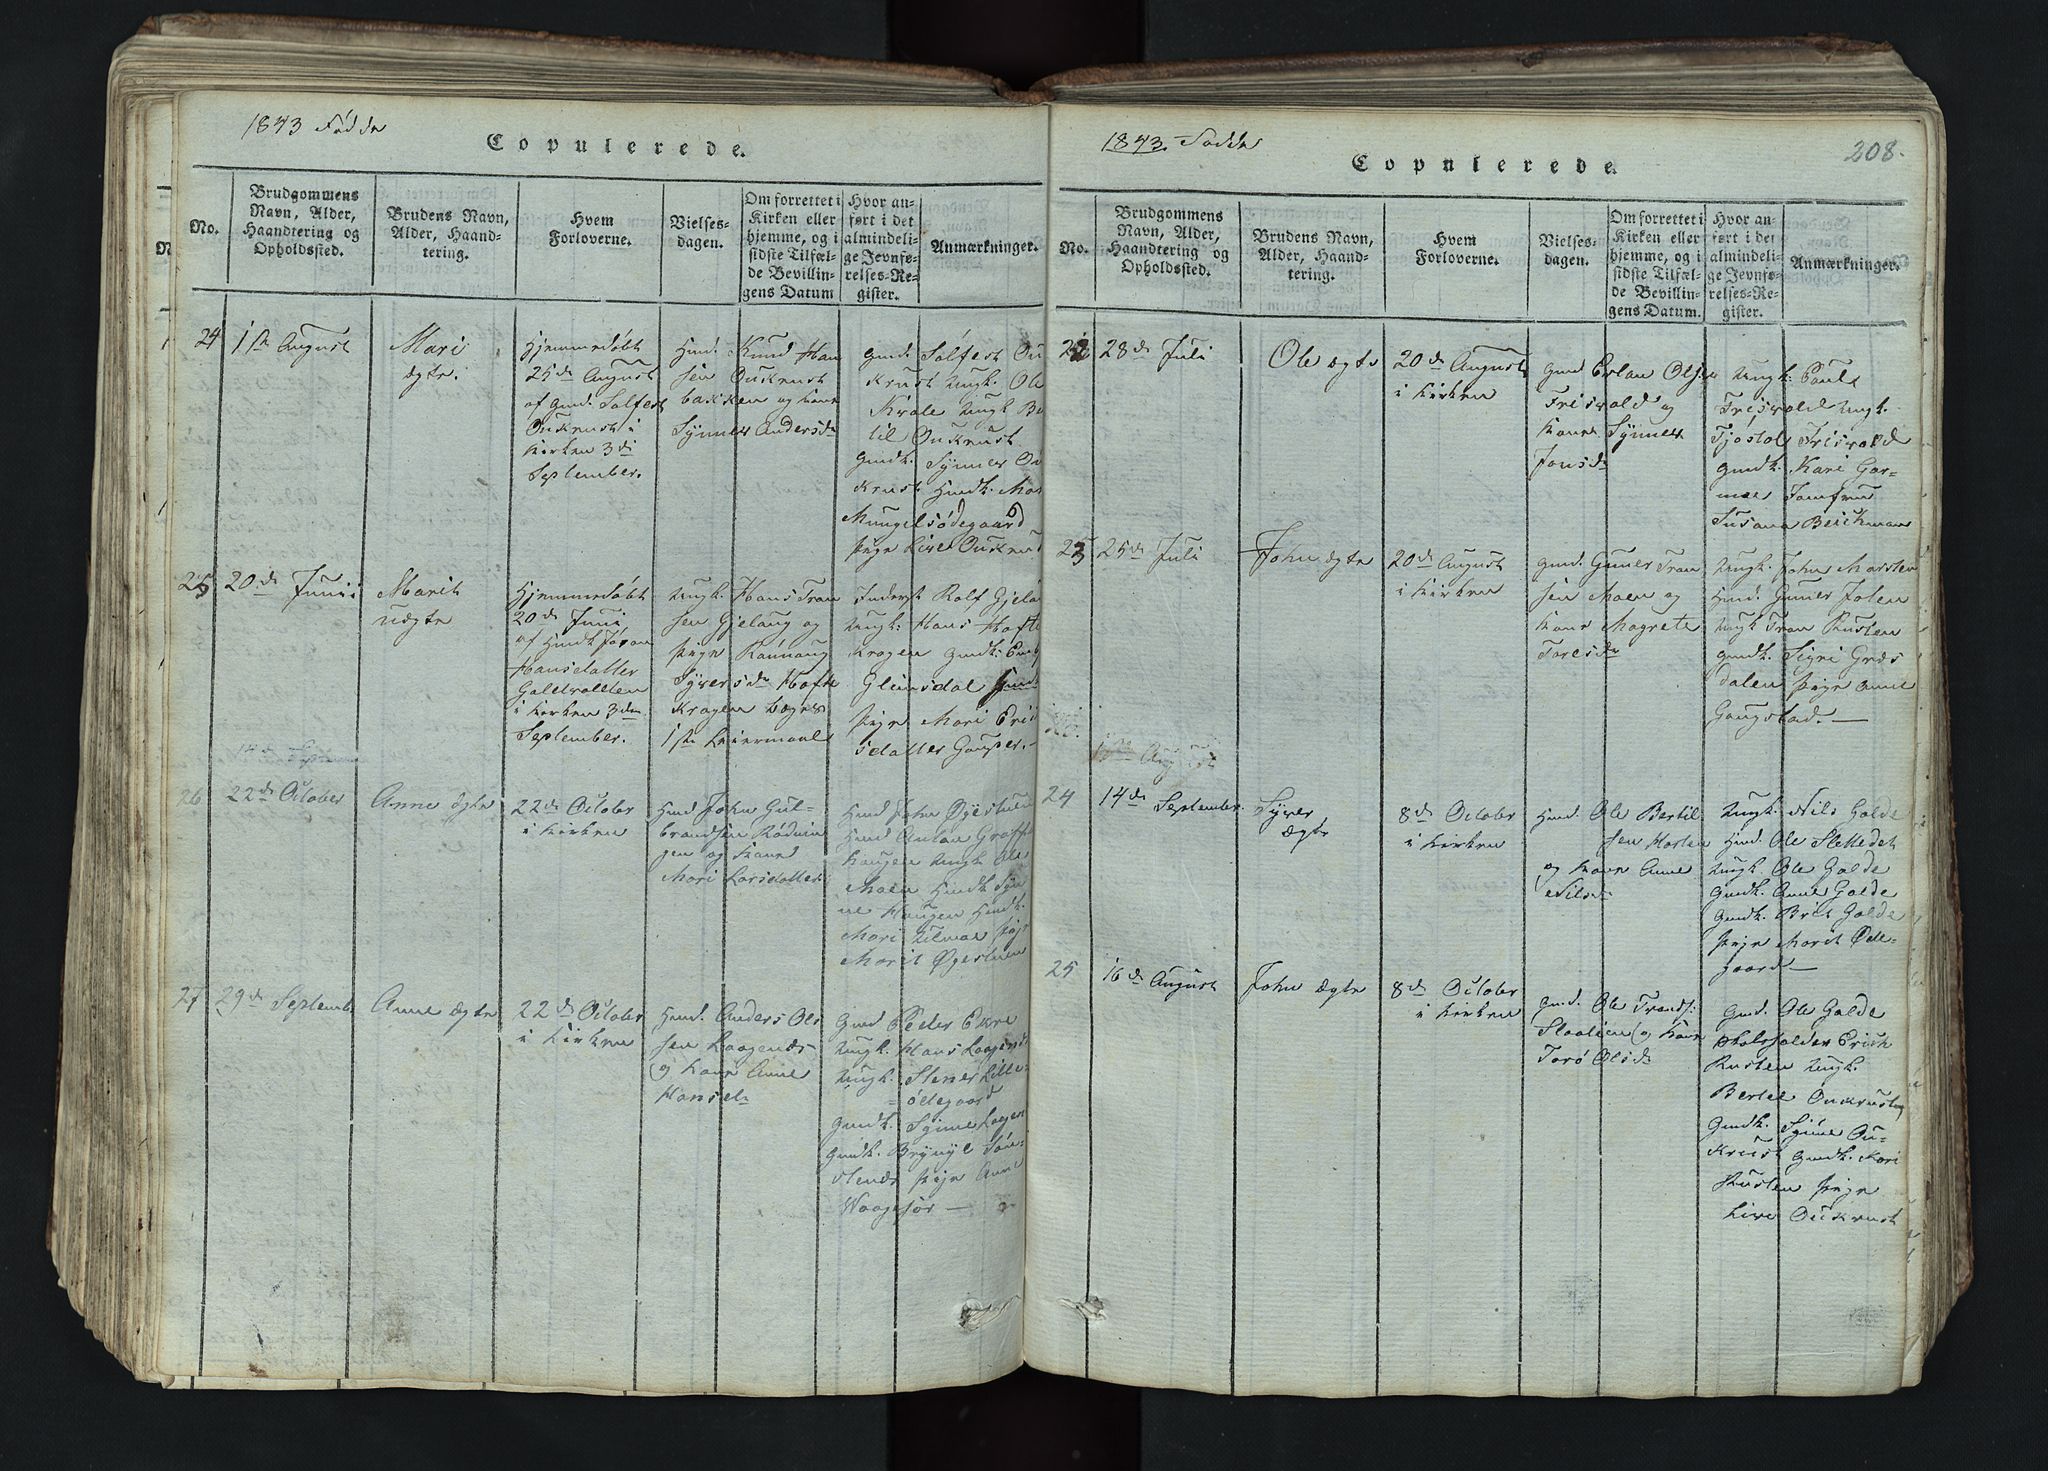 1843 Fødde
Copulerede.
No.
Brudgommens
Navn, Alder,
Haandtering og
Opholdssted.
Brudens Navn,
Alder, Haand-
tering.
Hvem
Forloverne.
Vielses-
dagen.
Om forrettet i
Kirken eller
hjemme, og i
sidste Tilfæl-
de Bevillin-
gens Datum
Hvor an-
ført i det
almindeli-
ge Jevnfø-
relses-Re-
gister.
Anmærkninger.
24
1ste August
Mari
ægte.
Hjemmedøbt
25de August
af Gmd. Solfest
Oukrust i
Kirken 3di
September.
Hmd. Knud Han
sen Oukrust
bakken og Kone
Synnev Andersdr
Gmd. Solfest Ou
krust Ungk. Ole
Kvale Ungk. Bo
til Oukrust
Gmdk. Synnev Ou
krust Hmdk. Mar
Mungelsødegaard
Pige Live Oukrust
25
20de Junii
Marit
uægte
Hjemmedøbt
20de Juni
af Hmdk Jøran
Hansdatter
Galdvolden
i Kirken 3den
September.
Ungk. Hans Tron
sen Gjelaug og
Pige Rannaug
Syversdr Hofte
Kragen begges
1ste Leiermaal
Inderst Rolf Gjela
Ungk. Hans Hofte
Kragen Gmdk.
Glimsdal
Pige Mari Eri
sdatter
14de Septem
26
22de October
Anne ægte
22de October
i Kirken
Hmd John Gul-
brandsen Rødvin
gen og Kone
Mari Larsdatter
Hmd John Øyestuen
Hmd Anton Graff
haugen Ungk Ole
Moen Hmdk Syn
ne Haugen Hmdk.
Mari Pige
Marit Øyestuen
27
29de Septembr
Anne ægte
22de October
i Kirken
Hmd. Anders Ols
sen Laagenæs
og Kone Anne
Hansdr
Gmd Peder Ekre
Ungk. Hans Laagenes
Ungk. Stener Lille-
= ødegaard
Gmdk. Synne Laagen
Gmdk. Brynyl Søn-
stenæs Pige Anne
Waagesør —
1843. Fødde
208.
Copulerede.
No.
Brudgommens
Navn, Alder,
Haandtering og
Opholdssted.
Brudens Navn,
Alder, Haand-
tering.
Hvem
Forloverne.
Vielses-
dagen.
Om forrettet i
Kirken eller
hjemme, og i
sidste Tilfæl-
de Bevillin-
gens Datum.
Hvor an-
ført i det
almindeli-
ge Jevnfø-
relses-Re-
gister.
Anmærkninger.
22
28de Juli
Ole ægte
20de August
i Kirken
Gmd Erlan Olsen
Frisvold og
Kone Synnev
Jonsdr
Ungk: Poul
Frisvold Ungk.
Tjøstol Frisvold
Gmdk. Kari Gar-
moe Jomfru
Susana Beichman
23
25de Juli
John ægte
20de August
i Kirken
Gmd. Guner Tron
sen Moen og
Kone Magrete
Toresdr
Ungk. John Marsten
Hmd. Guner Jolen
Ungk Tron Rusten
Gmdk. Sigri Gres
dalen Pige Anne
Gaugstad. —
August
24
14de September
Syver
ægte
8de October
i Kirken
Hmd. Ole Bertil
sen Horten
og Kone Anne
Nilsdr
Ungk. Nils Galde
Hmd. Ole Slettedet
Ungk Ole Galde
Gmdk. Anne Galde
Gmdk. Brit Galde
Pige Marit Øde-
gaard —
25
16de August
John ægte
8de October
i Kirken
Gmd. Ole Trondsen
Slaalien og Kone
Torø Olsdr
Gmd. Ole Galde
Skolsholder Erich
Rusten Ungk.
Bertel Oukrust
Gmdk. Synne Ou-
krust Gmdk. Kari
Rusten Pige
Live Oukrust